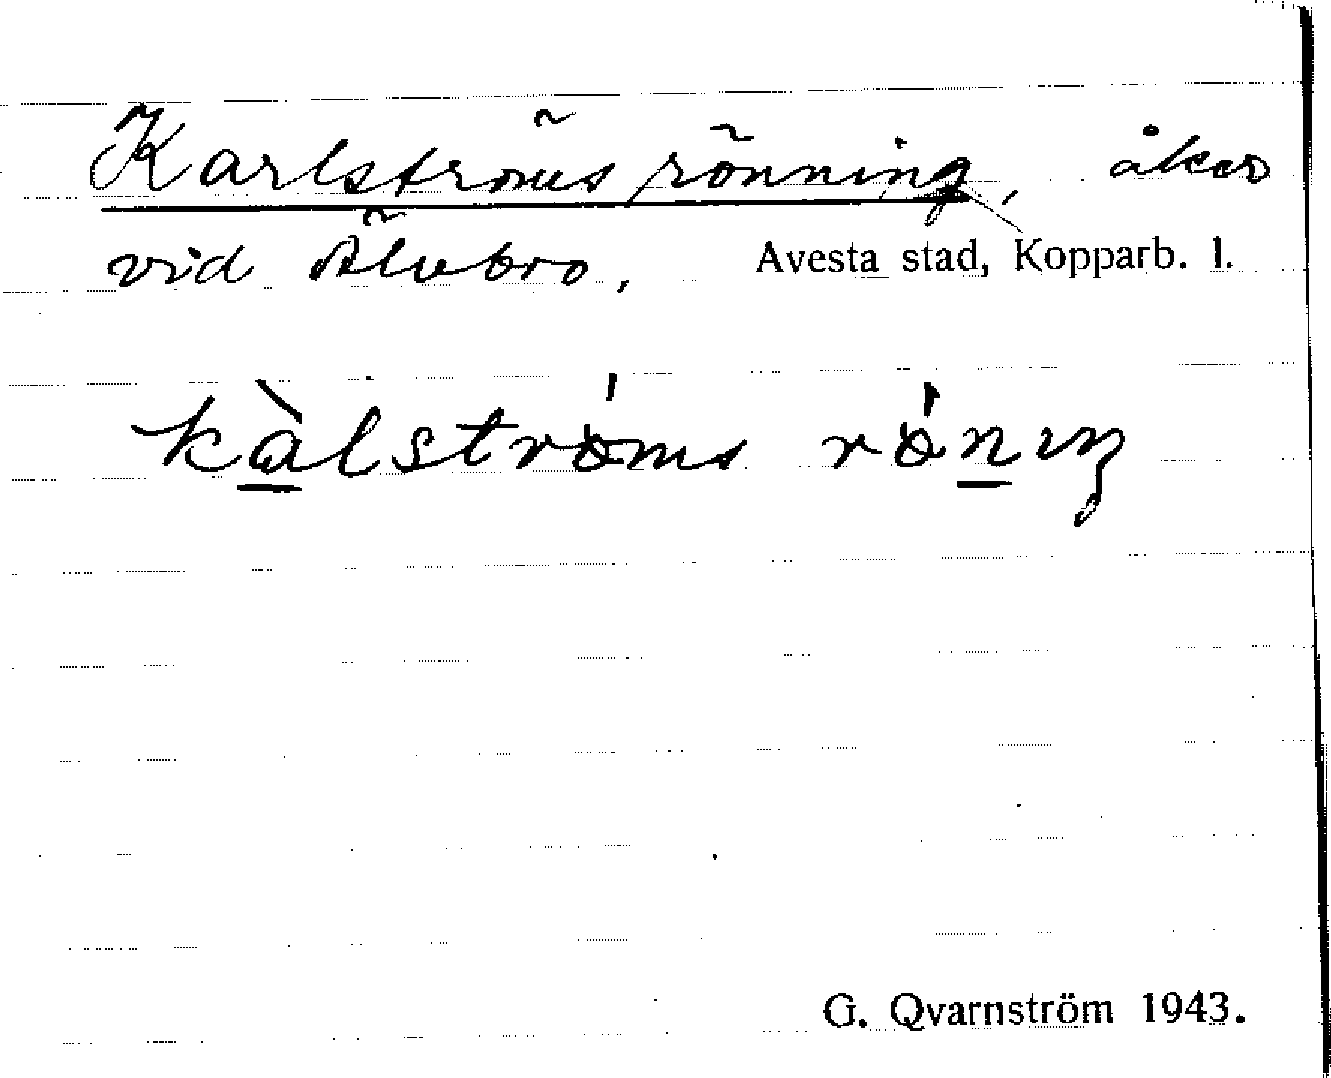 Karlströms rönning, åker
vid Älvbro. Avesta stad, Kopparb. l.
kàlstróms róniŋ
G. Qvarnström 1943.